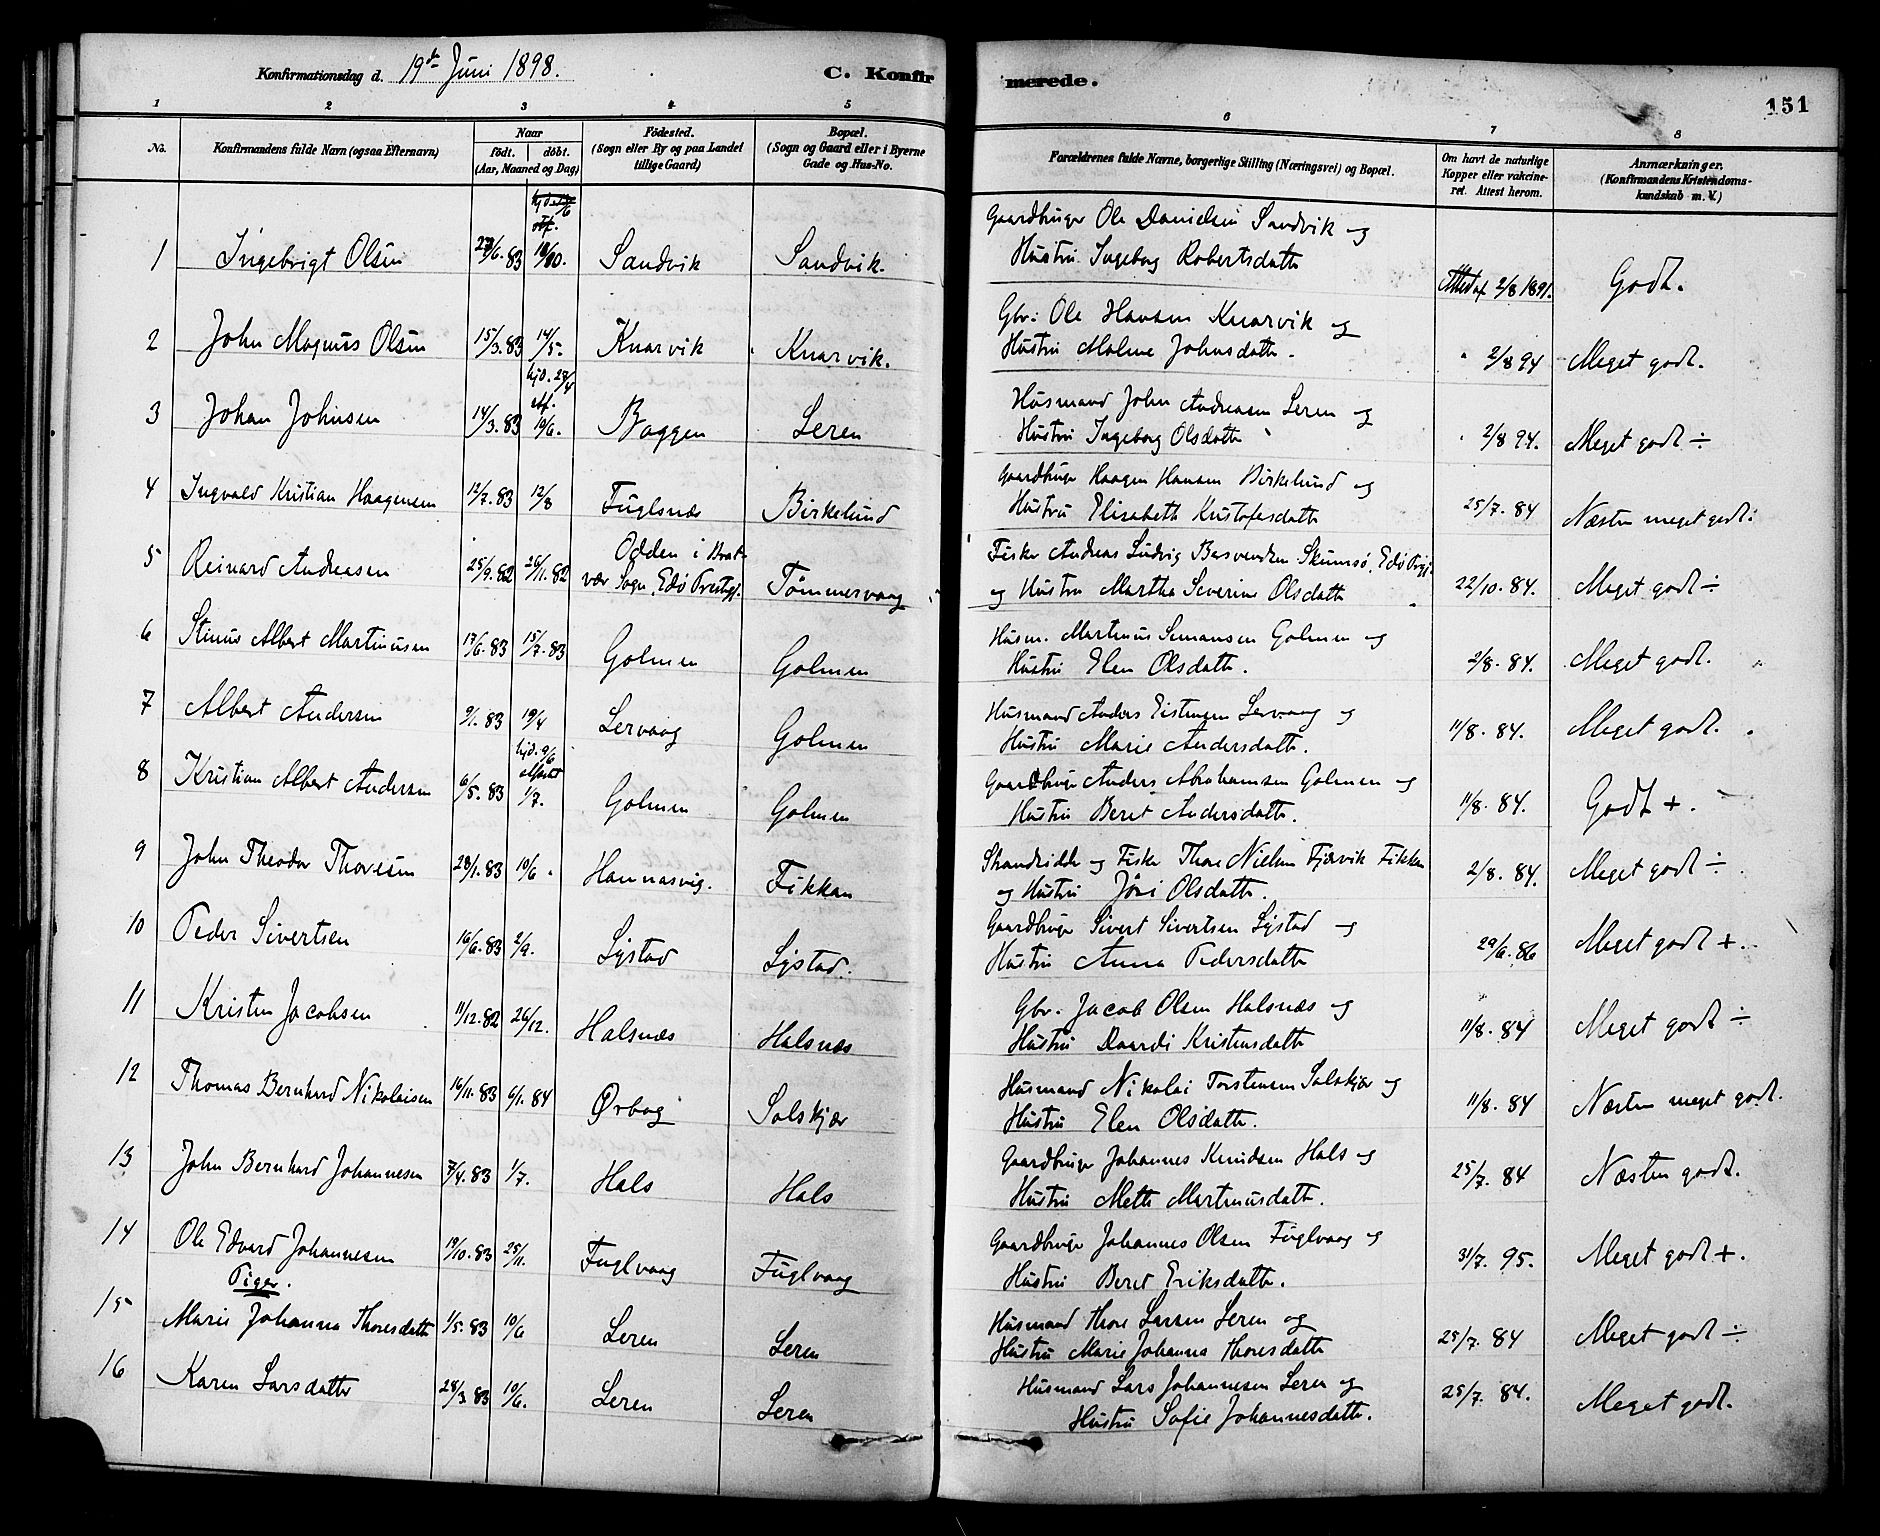 Konfirmationsdag d. 19de Juni 1898.
C. Konfir
merede.
151
1 2 3 4 5 6 7 8
No.
Konfirmandens fulde Navn (ogsaa Efternavn)
Naar
födt. döbt.
(Aar, Maaned og Dag)
Födested.
(Sogn eller By og paa Landet
tillige Gaard)
Bopæl.
(Sogn og Gaard eller i Byerne
Gade og Hus-No.
Forældrenes fulde Navne, borgerlige Stilling (Næringsvei) og Bopæl.
Om havt de naturlige
Kopper eller vakcine-
ret. Attest herom.
Anmærkninger.
(Konfirmandens Kristendoms-
kundskab m. V.)
Gaardbruger Ole Danielsen Sandvik og
1 Ingebrigt Olsen 83 Sandvik Sandvik. Hustru Ingeborg Robertsdatter Attest af 2/8 1891. Godt.
Gbr: Ole Hansen Knarvik og
2 John Magnus Olsen 15/3. 83 14/5. Knarvik Knarvik. Hustru Malene Johnsdatter. " 2/8 94 Meget godt.
hjd. 28/4
Husmand John Andreasen Leren og
3 Johan Johnsen 14/3. 83 10/6. Baggen Leren Hustru Ingeborg Olsdatter " 2/8 94. Meget godt ÷
Gaardbruger Haagen Hansen Birkelund og
4 Ingvald Kristian Haagensen 12/7. 83 12/8 Fuglsnæs Birkelund Hustru Elisabeth Kristofersdatter 25/7. 84 Næsten meget godt.
Odden i Brat-
Fisker Andreas Ludvig Skumsø, Edø Prgj.
5 Reinard Andreasen 25/9. 82 26/11. 82 vær Sogn, Edø Præstgj. Tømmervaag og Hustru Martha Severine Olsdatter 22/10. 84. Meget godt ÷
Husm. Martinus Simonsen Golmen og
6 Stinus Albert Martinusen 17/6. 83 15/7. 83 Golmen Golmen Hustru Elen Olsdatter. 2/8. 84. Meget godt.
Husmand Anders Lervaag og
7 Albert Andersen 9/1. 83 19/4 Lervaag Golmen Hustru Marie Andersdatter. 11/8. 84. Meget godt.
hjd. 9/6
Gaardbruger Anders Abrahamsen Golmen og
8 Kristian Albert Andersen 6/5. 83 1/7. Golmen Golmen Hustru Beret Andersdatter. 11/8. 84. Godt +.
Strandsidder og Fisker Thore Nielsen Fjærvik Fikkan
9 John Theodor Thoresen 28/1. 83 10/6. Hannasvig. Fikkan og Hustru Jöri Olsdatter. 2/8. 84. Meget godt ÷.
Gaardbruger Sivert Sivertsen Lystad og
10 Peder Sivertsen 16/6. 83 2/9. Lystad Lystad. Hustru Anna Pedersdatter 29/6. 86 Meget godt +.
Gbr. Jacob Olsen Halsnæs og
11 Kristen Jacobsen 11/12. 82 26/12. Halsnæs Halsnæs Hustru Daardi Kristensdatter 11/8. 84 Meget godt ÷
Husmand Nikolai Torstensen Solskjær og
12 Thomas Bernhard Nikolaisen 16/11. 83 6/1. 84 Ørbog Solskjær Hustru Elen Olsdatter. 11/8. 84 Næsten meget godt.
Gaardbruger Johannes Knudsen Hals og
13 John Bernhard Johannesen 7/4. 83 1/7. Hals Hals Hustru Mette Martinusdatter. 25/7. 84 Næsten godt.
Gaardbruger Johannes Olsen Fuglvaag og
14 Ole Edvard Johannesen 19/10. 83 25/11. Fuglvaag Fuglvaag Hustru Beret Eriksdatter. 31/7. 95. Meget godt +.
Piger.
Husmand Thore Larsen Leren og
15 Marie Johanna Thoresdatter 1/5. 83 10/6 Leren Leren Hustru Marie Johanna Thoresdatter 25/7. 84 Meget godt ÷
Husmand Lars Johannesen Leren og
16 Karen Larsdatter 28/3. 83 10/6. Leren Leren Hustru Sofie Johannesdatter. 25/7. 84. Meget godt.